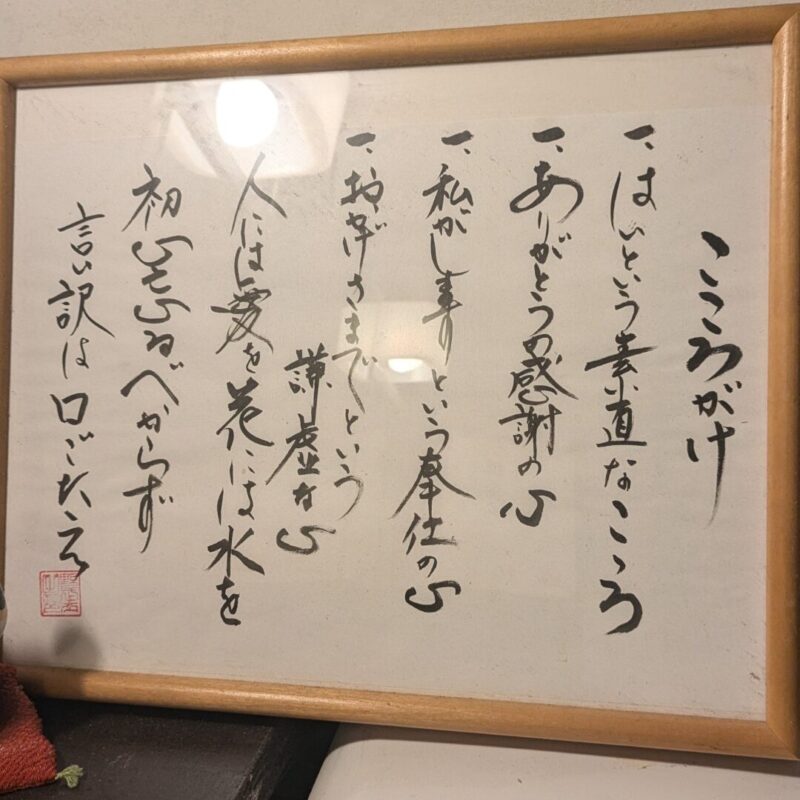 こころがけ
一、はいという素直なこころ
一、ありがとうの感謝の心
一、私がします という奉仕の心
一、おかげさまでという
謙虚な心
人には愛を花には水を
初心忘るべからず
言い訳は口ごたえ